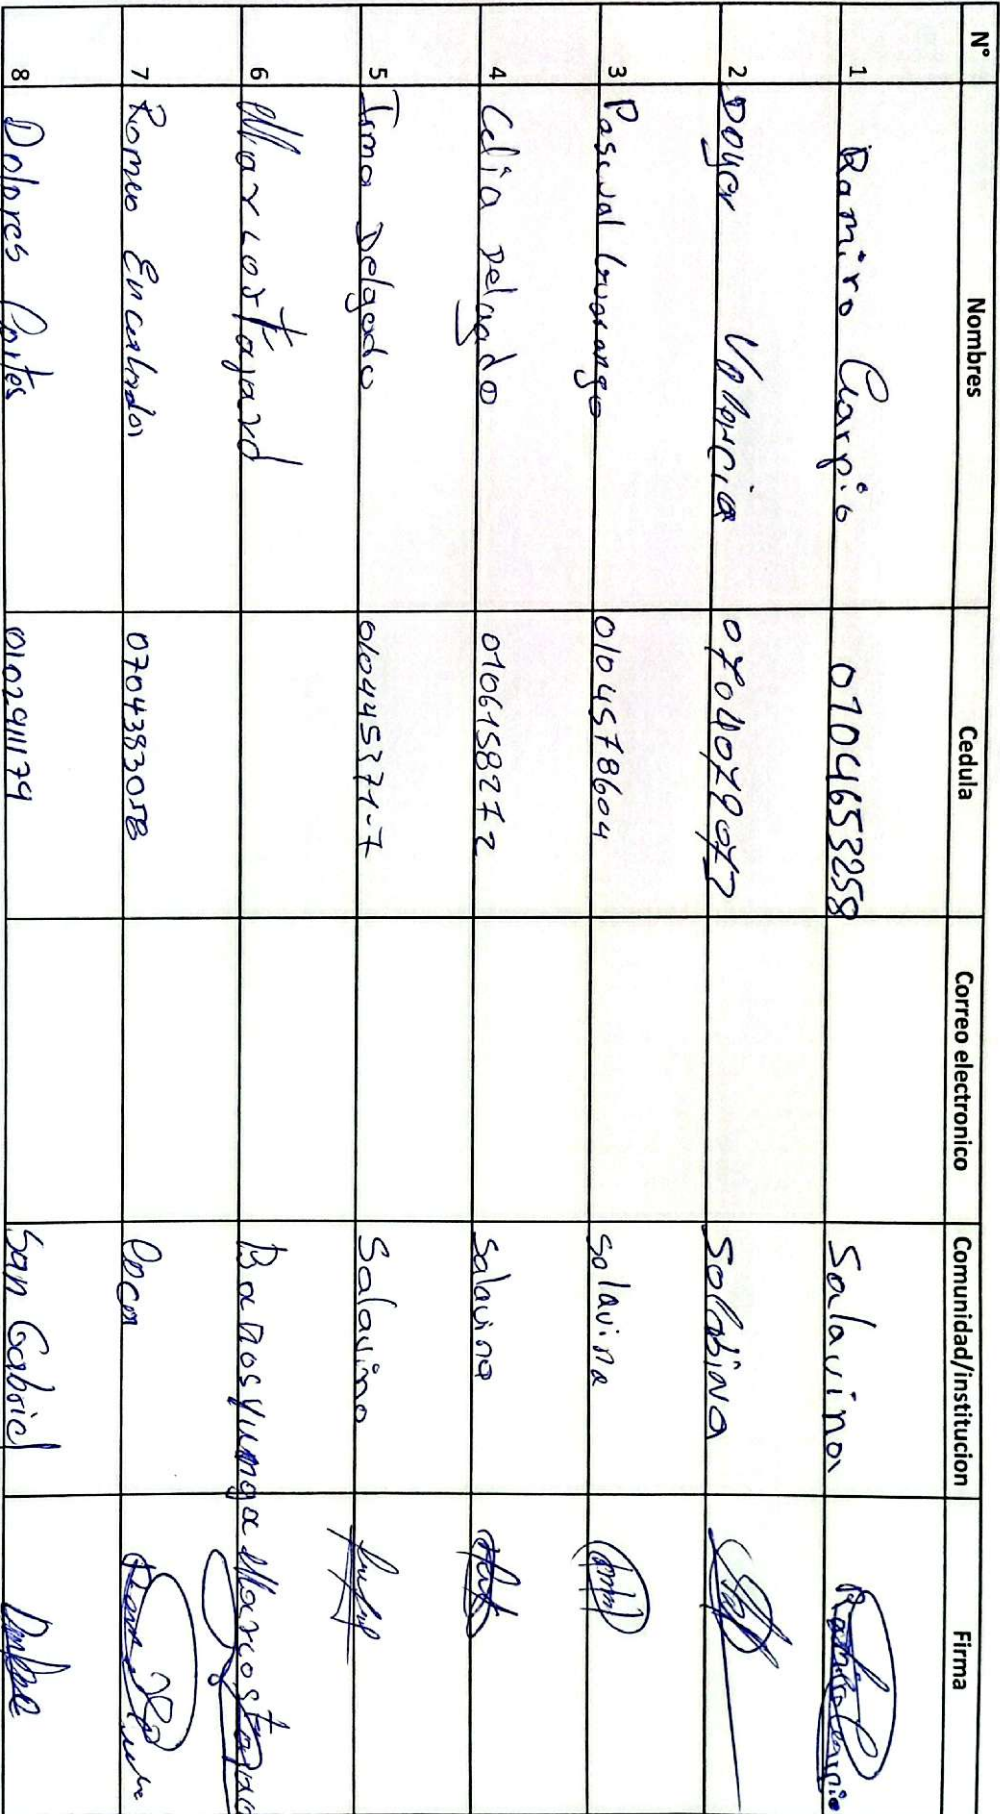 N° Nombres Cedula Correo electronico Comunidad/institucion Firma
1 Ramiro Carpio 0704653258 Salavina Ramiro Carpio
2 Doyer Valencia Solabina
3 Pascual Guarango 0104578604 Salavina
4 Celia Delgado 0106158272 Salavina
5 Irma Delgado 010445371-7 Salavina
6 Marcos Tajard Baños yunga Marcos
7 Romeo Encalada 0704383058 Coca
8 Dolores Cortes 0102911179 San Gabriel